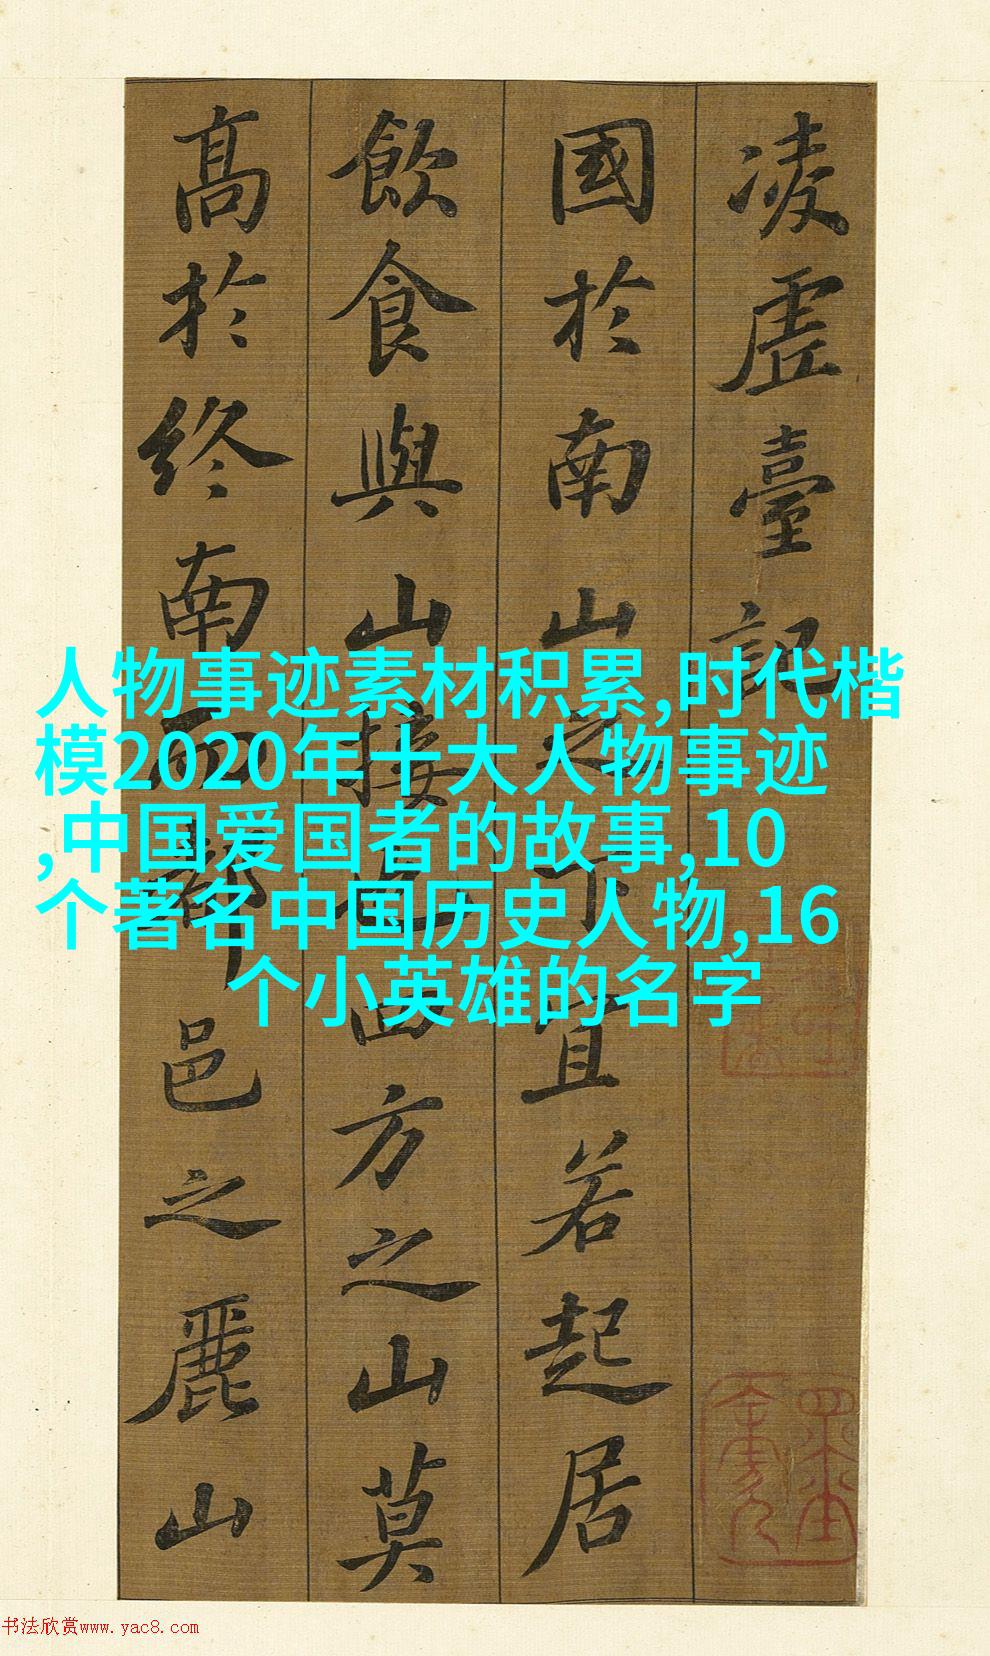 凌虛臺記
國於南山之下宜若起居
飲食與山接也四方之山莫
高於終南而都邑之麗山
人物事迹素材积累,时代楷
模2020年十大人物事迹
,中国爱国者的故事,10
个著名中国历史人物,16
个小英雄的名字
书法欣赏www.yac8.com